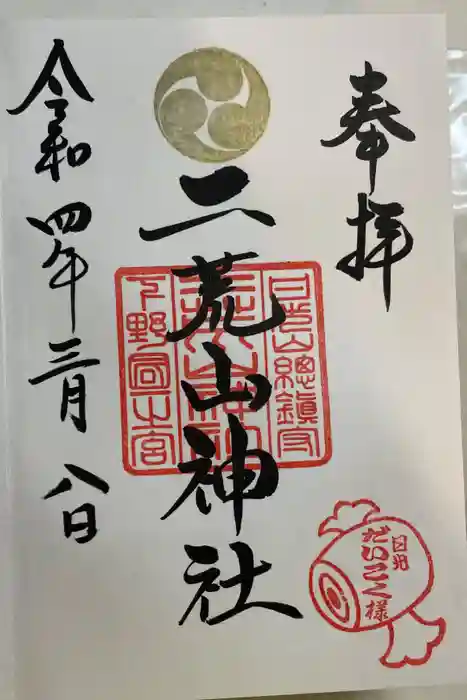 奉拝
日光山總鎮守
二荒山神社
下野国一宮
令和四年三月八日
日光
だいこく様